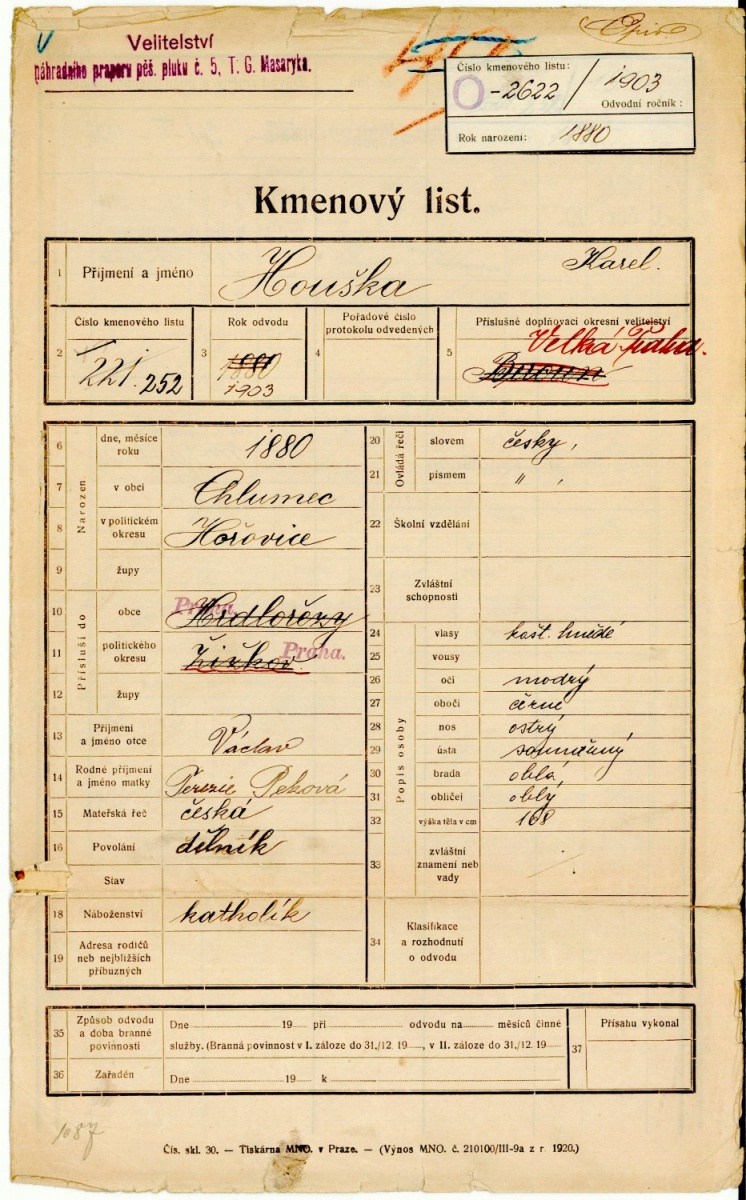 Opis
Velitelství
náhradního praporu pěš. pluku č. 5, T. G. Masaryka.
Číslo kmenového listu:
O-2622 / 1903
Odvodní ročník:
Rok narození: 1880
Kmenový list.
1 Příjmení a jméno Houška Karel.
Číslo kmenového listu
2 221. 252
3 Rok odvodu
1880
1903
4 Pořadové číslo
protokolu odvedených
5 Příslušné doplňovací okresní velitelství
Velká Praha.
Beroun
Narozen
6 dne, měsíce
roku 1880
7 v obci Chlumec
8 v politickém
okresu Hořovice
9 župy
Přísluší do
10 obce Hrdlořezy Praha.
11 politického
okresu Žižkov Praha.
12 župy
13 Příjmení
a jméno otce Václav
14 Rodné příjmení
a jméno matky Terezie Peková
15 Mateřská řeč česká
16 Povolání dělník
Stav
18 Náboženství katholík
19 Adresa rodičů
neb nejbližších
příbuzných
Ovládá řeči
20 slovem česky,
21 písmem " ,
22 Školní vzdělání
23 Zvláštní
schopnosti
Popis osoby
24 vlasy kašt. hnědé
25 vousy
26 oči modrý
27 obočí černé
28 nos ostrý
29 ústa souměrný
30 brada oblá
31 obličej oblý
32 výška těla v cm 168
33 zvláštní
znamení neb
vady
34 Klasifikace
a rozhodnutí
o odvodu
35 Způsob odvodu
a doba branné
povinnosti
Dne 19 při odvodu na měsíců činné
služby. (Branná povinnost v I. záloze do 31./12. 19 , v II. záloze do 31./12. 19
36 Zařaděn
Dne 19 k
37 Přísahu vykonal
1087
Čís. skl. 30. — Tiskárna MNO. v Praze. — (Výnos MNO. č. 210100/III-9a z r. 1920.)